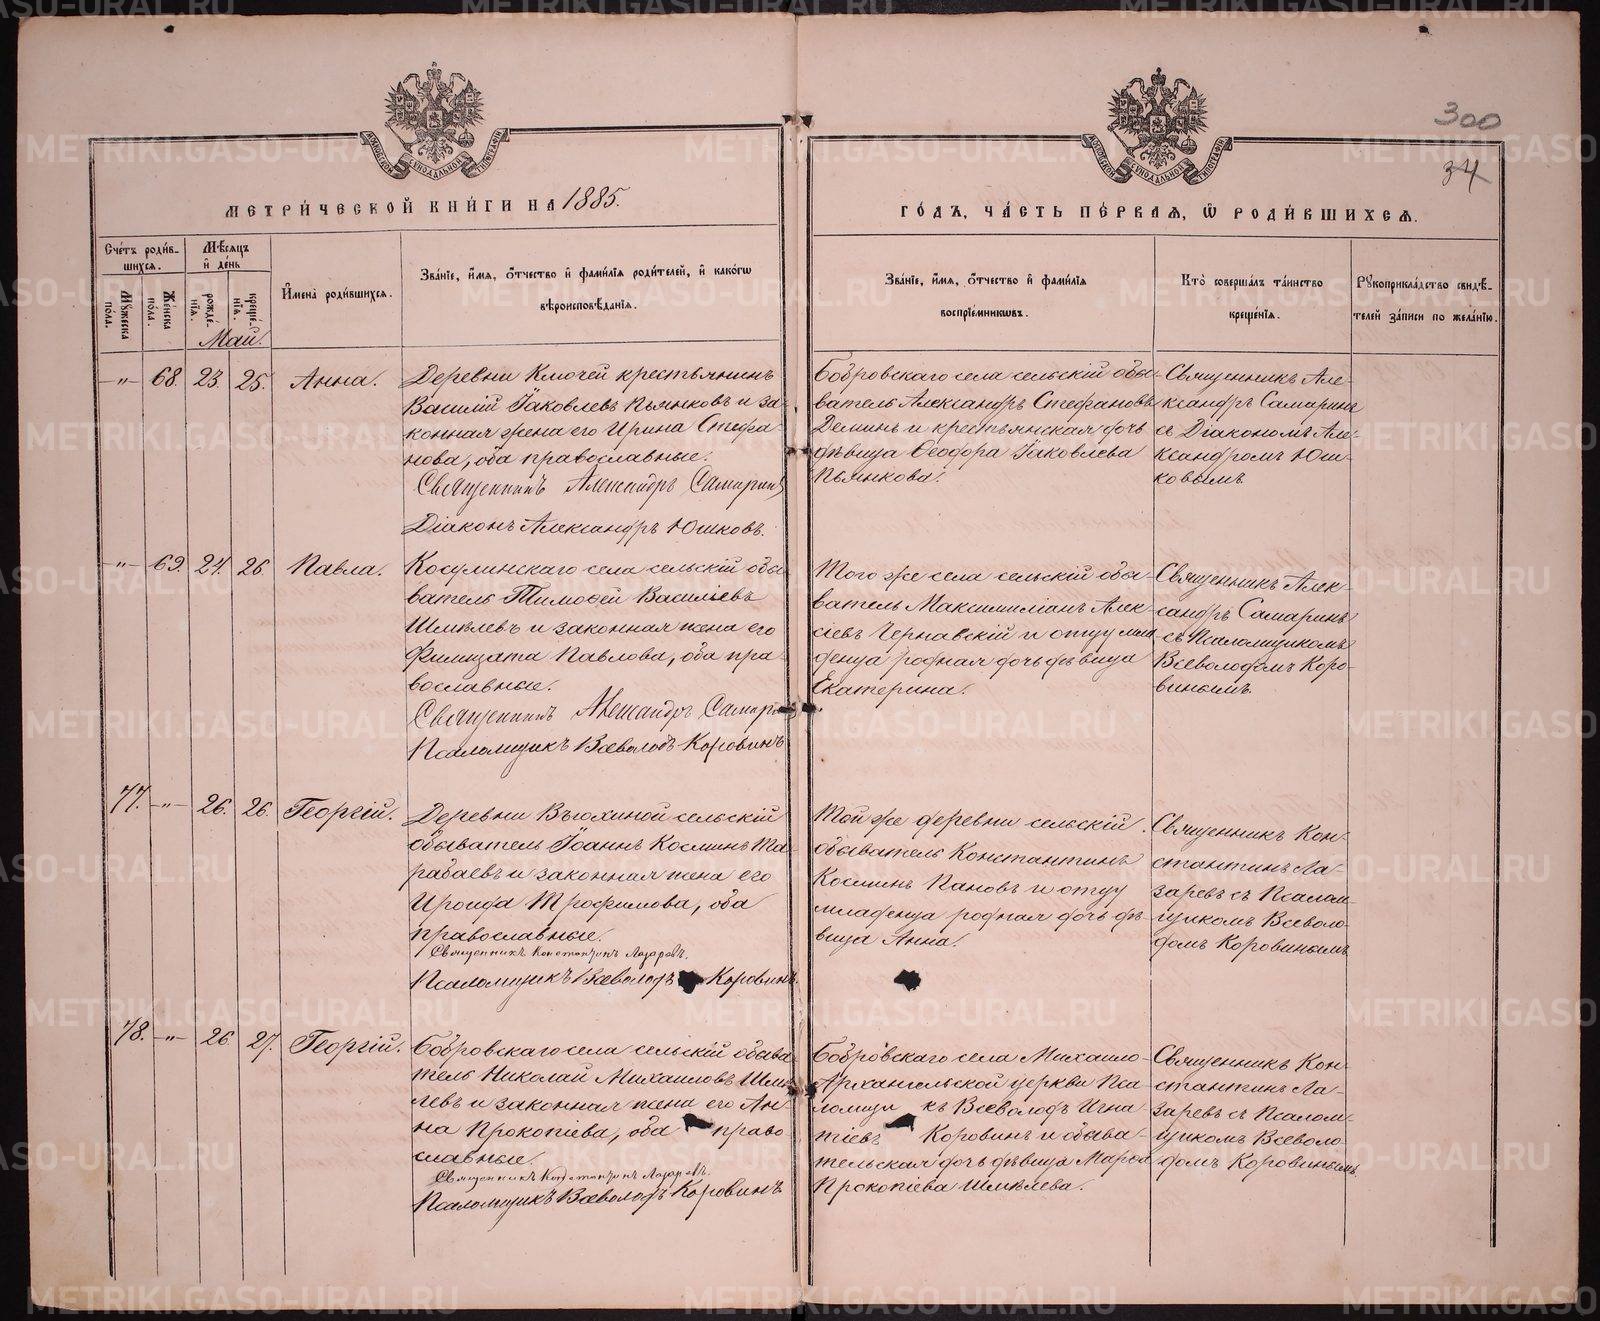 300
34
МЕТРИ́ЧЕСКОЙ КНИ́ГИ НА 1885.
ГО́ДЪ, ЧА́СТЬ ПЕ́РВАЯ, Ѡ РОДИ́ВШИХСЯ.
Сче́тъ роди́в-
шихся.
Му́жеска по́ла.
Же́нска по́ла.
Мѣ́сяцъ
и де́нь
рожде́-
нія.
креще́-
нія.
Май.
И́мена̀ роди́вшихся.
Зва́нїе, и́мя, о́тчество и фами́лїя роди́телей, и како́гѡ
вѣроисповѣ́данїя.
Зва́нїе, и́мя, о́тчество и фами́лїя
воспрїе́мникѡвъ.
Кто̀ соверша́лъ та́инство
креще́нїя.
Рꙋкоприкла́дство свидѣ́-
телей за́писи по жела́нїю.
-"- 68. 23. 25. Анна.
Деревни Ключей крестьянинъ
Василій Іаковлевъ Пьянковъ и за-
конная жена его Ирина Стефа-
нова, оба православные.
Священникъ Александръ Самаринъ
Діаконъ Александръ Юшковъ.
Бобровскаго села сельскій обы-
ватель Александръ Стефановъ
Деминъ и крестьянская дочь
дѣвица Ѳеодора Іаковлева
Пьянкова.
Священникъ Але-
ксандръ Самаринъ
съ Діакономъ Але-
ксандромъ Юш-
ковымъ
-"- 69. 24. 26. Павла.
Косулинскаго села сельскій обы-
ватель Тимофей Василіевъ
Шмелевъ и законная жена его
Филицата Павлова, оба пра-
вославные.
Священникъ Александръ Самари
Псаломщикъ Всеволодъ Коровинъ
Того же села сельскій обы-
ватель Максимиліанъ Алек-
сіевъ Чернавскій и отцу мла
денца родная дочь дѣвица
Екатерина.
Священникъ Алек-
сандръ Самаринъ
съ Псаломщикомъ
Всеволодомъ Коро-
винымъ.
77. -"- 26. 26. Георгій.
Деревни Вьюхиной сельскій
обыватель Іоаннъ Косминъ Та
рабаевъ и законная жена его
Ироида Трофимова, оба
православные.
Священникъ Константинъ Лазаревъ.
Псаломщикъ Всеволодъ Коровинъ.
Той же деревни сельскій
обыватель Константинъ
Косминъ Пановъ и отцу
младенца родная дочь дѣ-
вица Анна.
Священникъ Кон-
стантинъ Ла-
заревъ съ Псалом-
щикомъ Всеволо-
домъ Коровинымъ
78. -"- 26. 27. Георгій.
Бобровскаго села сельскій обыва
тель Николай Михаиловъ Шме
левъ и законная жена его Ан-
на Прокопіева, оба право-
славные.
Священникъ Константинъ Лазаревъ.
Псаломщикъ Всеволодъ Коровинъ
Бобровскаго села Михаило-
Архангельской церкви Пса
ломщи къ Всеволодъ Игна-
тіевъ Коровинъ и обыва-
тельская дочь дѣвица Марья
Прокопіева Шмелева.
Священникъ Кон-
стантинъ Ла-
заревъ съ Псалом-
щикомъ Всеволо-
домъ Коровинымъ.
METRIKI.GASO-URAL.RU